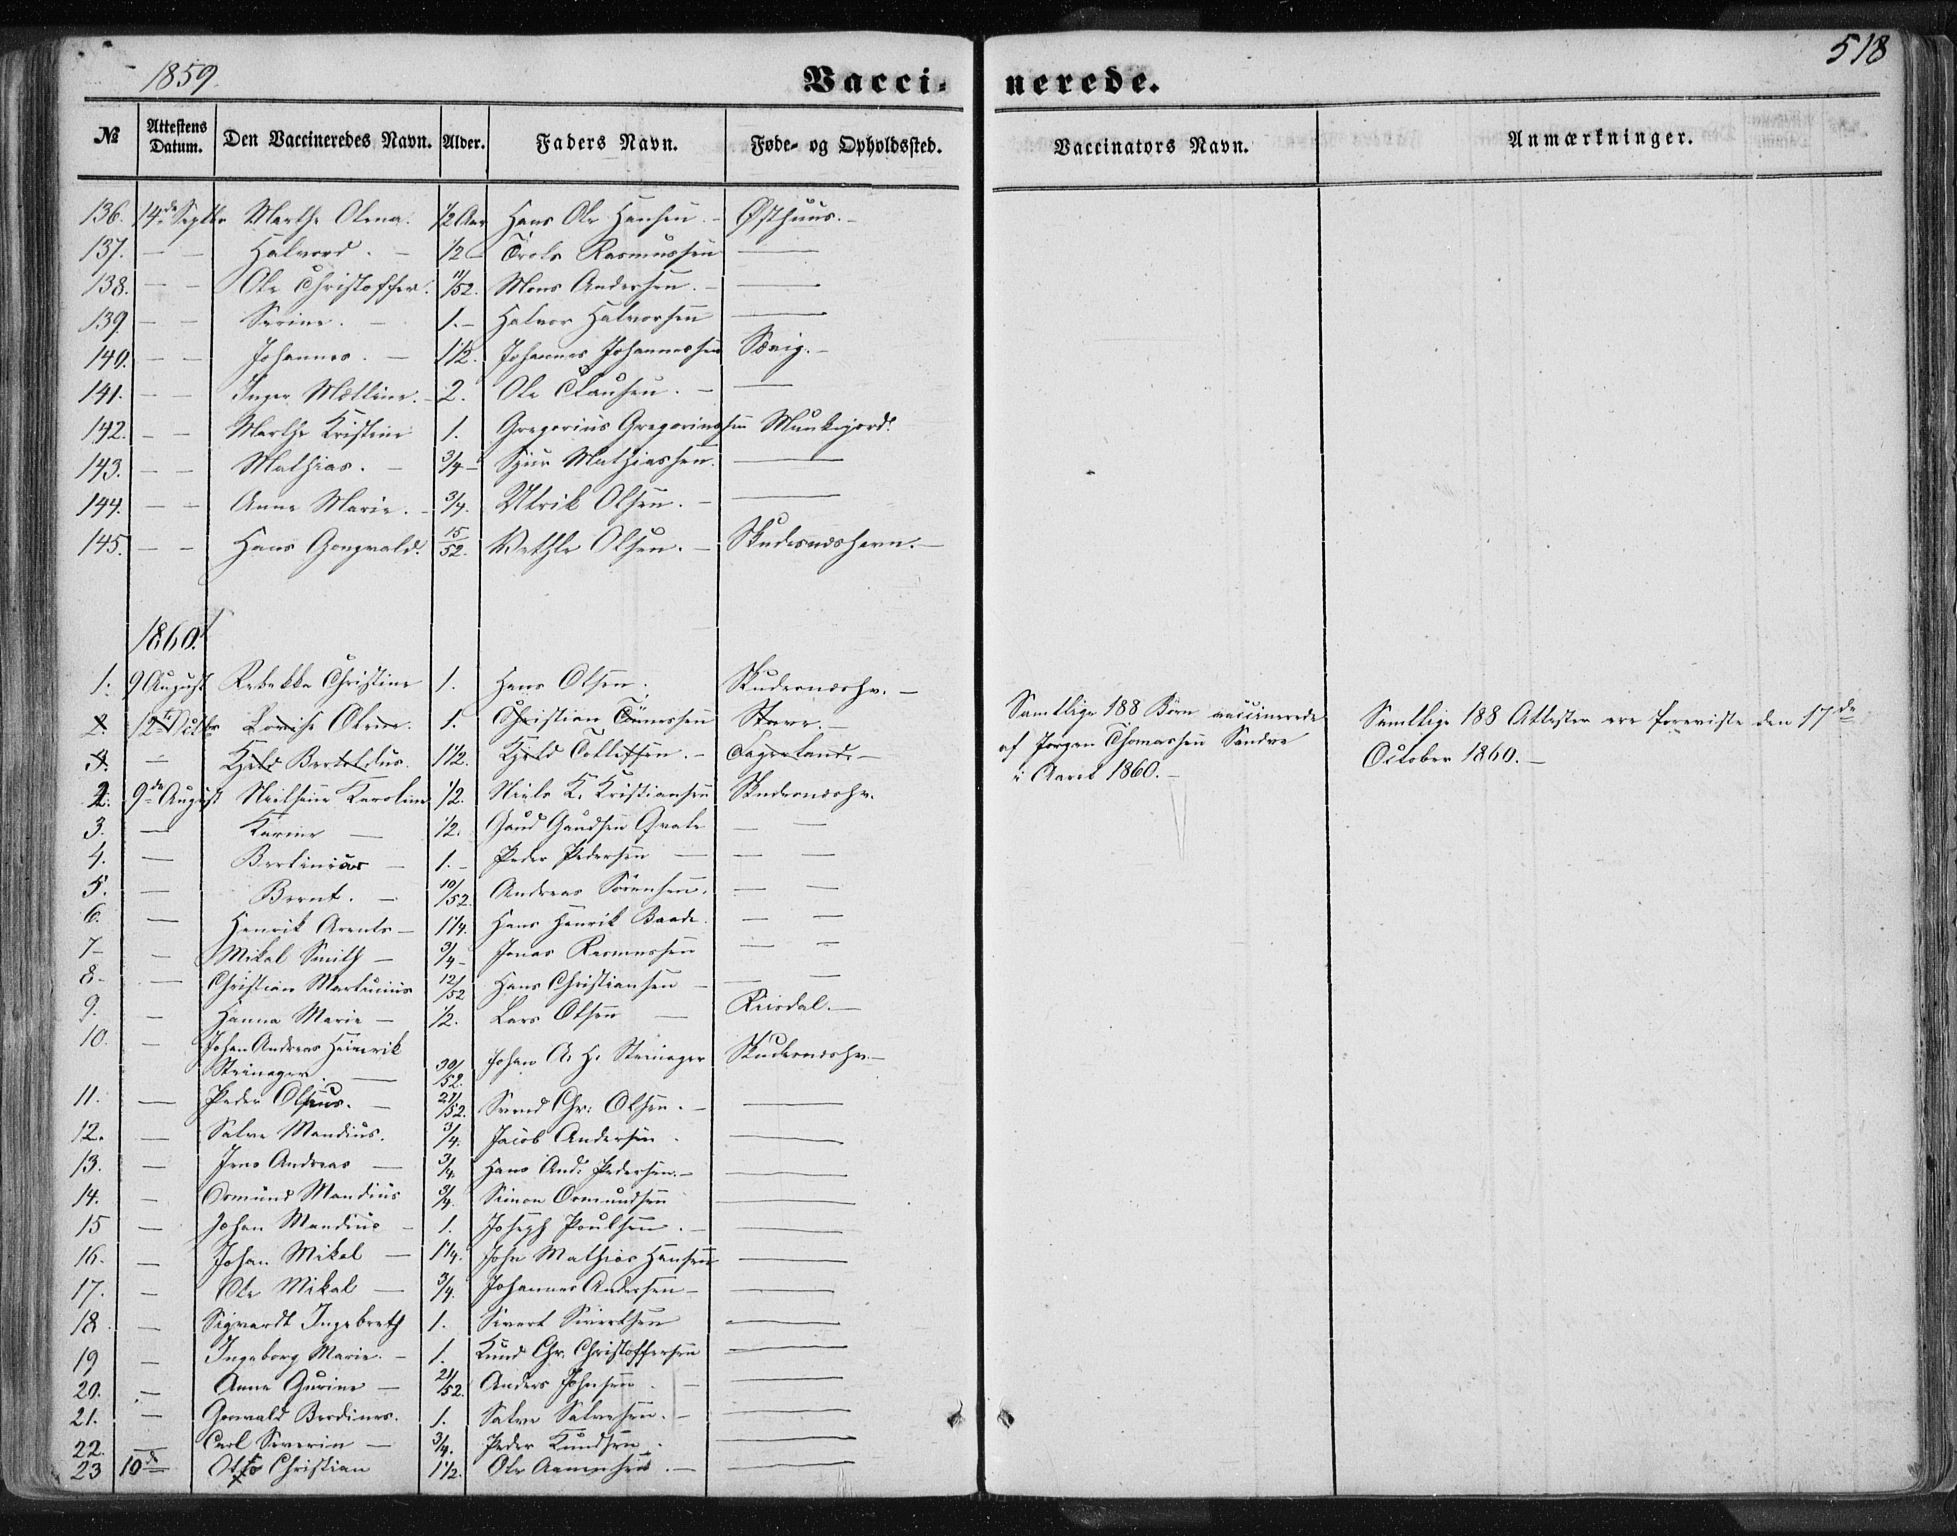 518
1859.
Vacci- nerede.
№ Attestens Datum. Den Vaccineredes Navn. Alder. Faders Navn. Føde- og Opholdssted. Vaccinators Navn. Anmærkninger.
136. 14de Septbr Marthe Olena. 1/2 Aar Hans Ole Hansen. – Østhuus. –
137. – – Halvord. – 1/2 – Trols Rasmussen —
138. – – Ole Christoffer. 11/52. Mons Andersen. – —
139. – – Serine. – 1. – Halvor Halvorsen —
140. – – Johannes. – 1 1/2. Johannes Johannessen Sævig. –
141. – – Inger Mælline. – 2. Ole Clausen. – —
142. – – Marthe Kristine 1. Gregorius Gregoriussen Munkejord.
143. – – Mathias. – 3/4 – Sjur Mathiassen. —
144. – – Anne Marie. – 3/4. Ulrik Olsen. – —
145. – – Hans Gongvald. 15/52. Vethle Olsen. – Skudesnæshavn. –
1860.
1. 9 August Rebekka Christine 1. Hans Olsen. Skudesnæshv. –
2. 12te Octbr Lovise Olene. 1. Christian Tønnessen Stave. –
3. – Kjeld Berthelius. 1 1/2. Kjeld Tollefsen. – Fagerland. –
Samtlige 188 Børn vaccinerede
af Jørgen Thomassen Sandve
i Aaret 1860. –
Samtlige 188 Attester ere foreviste den 17de
October 1860. –
2. 9de August Neilsine Karoline 1/2. Niels K. Kristiansen Skudesnæshv.
3. — Karine — 1/2. Gaud Gaudsen Qvale — —
4. — Bertinius — 1. – Peder Pedersen — — —
5. — Bernt. – 10/52. Andreas Sørensen. — —
6. — Henrik Arents – 1 1/4. Hans Henrik Baade. — —
7 – – Mikal Smith – 3/4 – Jonas Rasmussen — —
8 – — Christian Martinius 12/52 Hans Christiansen – — —
9. – Hanna Marie – 1/2. Lars Olsen — Risdal. –
10. – Johan Andreas Heinrik
Steinager. — 30/52. Johan A. H. Steinager Skudesnæshv. –
11. — Peder Olsenius. – 21/52. Svend Chr: Olsen. – —
12. — Salve Mandius. 3/4. Jacob Andersen. —
13. — Jens Andreas — 3/4. Hans And: Pedersen. – —
14. – Osmund Mandius 3/4. Simon Osmundsen —
15 — Johan Mandius – 1. Joseph Poulsen. – —
16. – Johan Mikal — 1 1/4. John Mathias Hansen —
17. – Ole Mikal — 3/4. Johannes Andersen – —
18 – Sigvardt Ingebreth 1. Sivert Sivertsen —
19 – Ingeborg Marie. – 1. Knud Chr. Christoffersen —
20. – Anne Gurine — 21/52. Anders Johnsen. – —
21. — Gonvald Berdines. 1. Salve Salvesen. – —
22. — Carl Severin — 3/4. Peder Knudsen. —
23 10de Otto Christian 1 1/2. Ole Aanensen. – —